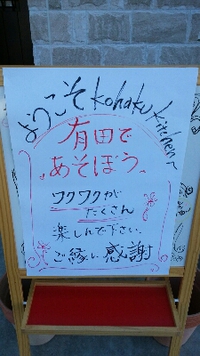 ようこそ kohaku kitchen へ
有田で
あそぼう。
ワクワクが
たくさん
楽しんで下さい。
ご縁に感謝